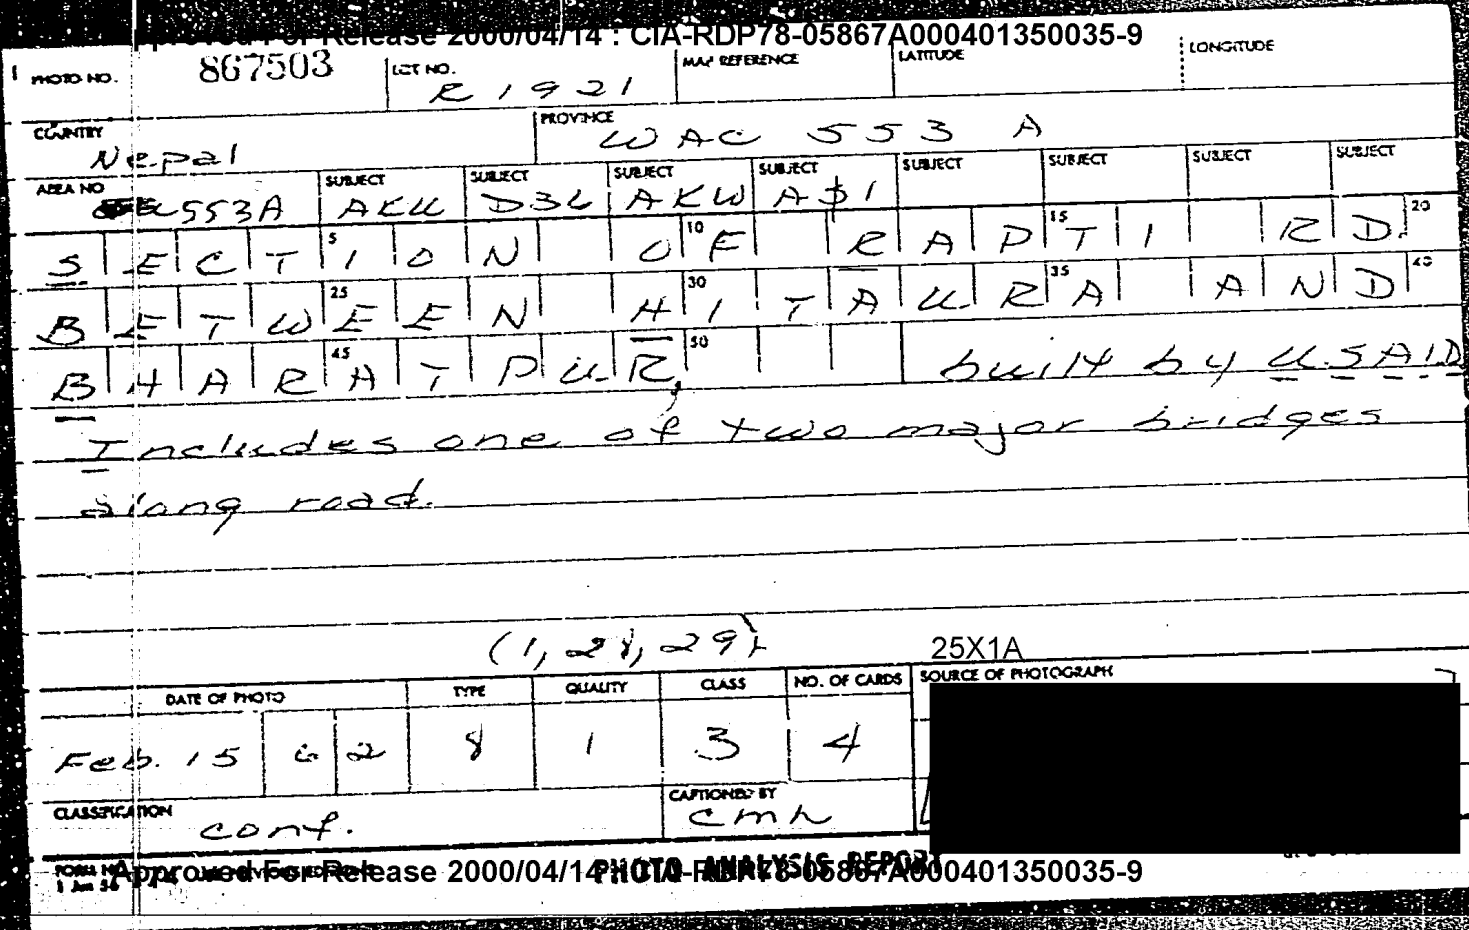 Approved For Release 2000/04/14 : CIA-RDP78-05867A000401350035-9
PHOTO NO. 867503 LOT NO. R 1921 MAP REFERENCE LATITUDE LONGITUDE
COUNTRY Nepal PROVINCE WAC 553 A
AREA NO 553A SUBJECT AKU SUBJECT D3L SUBJECT AKW SUBJECT A$1 SUBJECT SUBJECT SUBJECT SUBJECT
SECTION OF RAPTI RD. 5 10 15 20
BETWEEN HITAURA AND 25 30 35 40
BHARATPUR, 45 50 built by USAID
Includes one of two major bridges
along road.
(1, 28, 29)
25X1A
DATE OF PHOTO TYPE QUALITY CLASS NO. OF CARDS SOURCE OF PHOTOGRAPH
Feb. 15 62 8 1 3 4
CLASSIFICATION conf. CAPTIONED BY cmh
FORM
1 Jun 56
PHOTO ANALYSIS REPORT
Approved For Release 2000/04/14 : CIA-RDP78-05867A000401350035-9